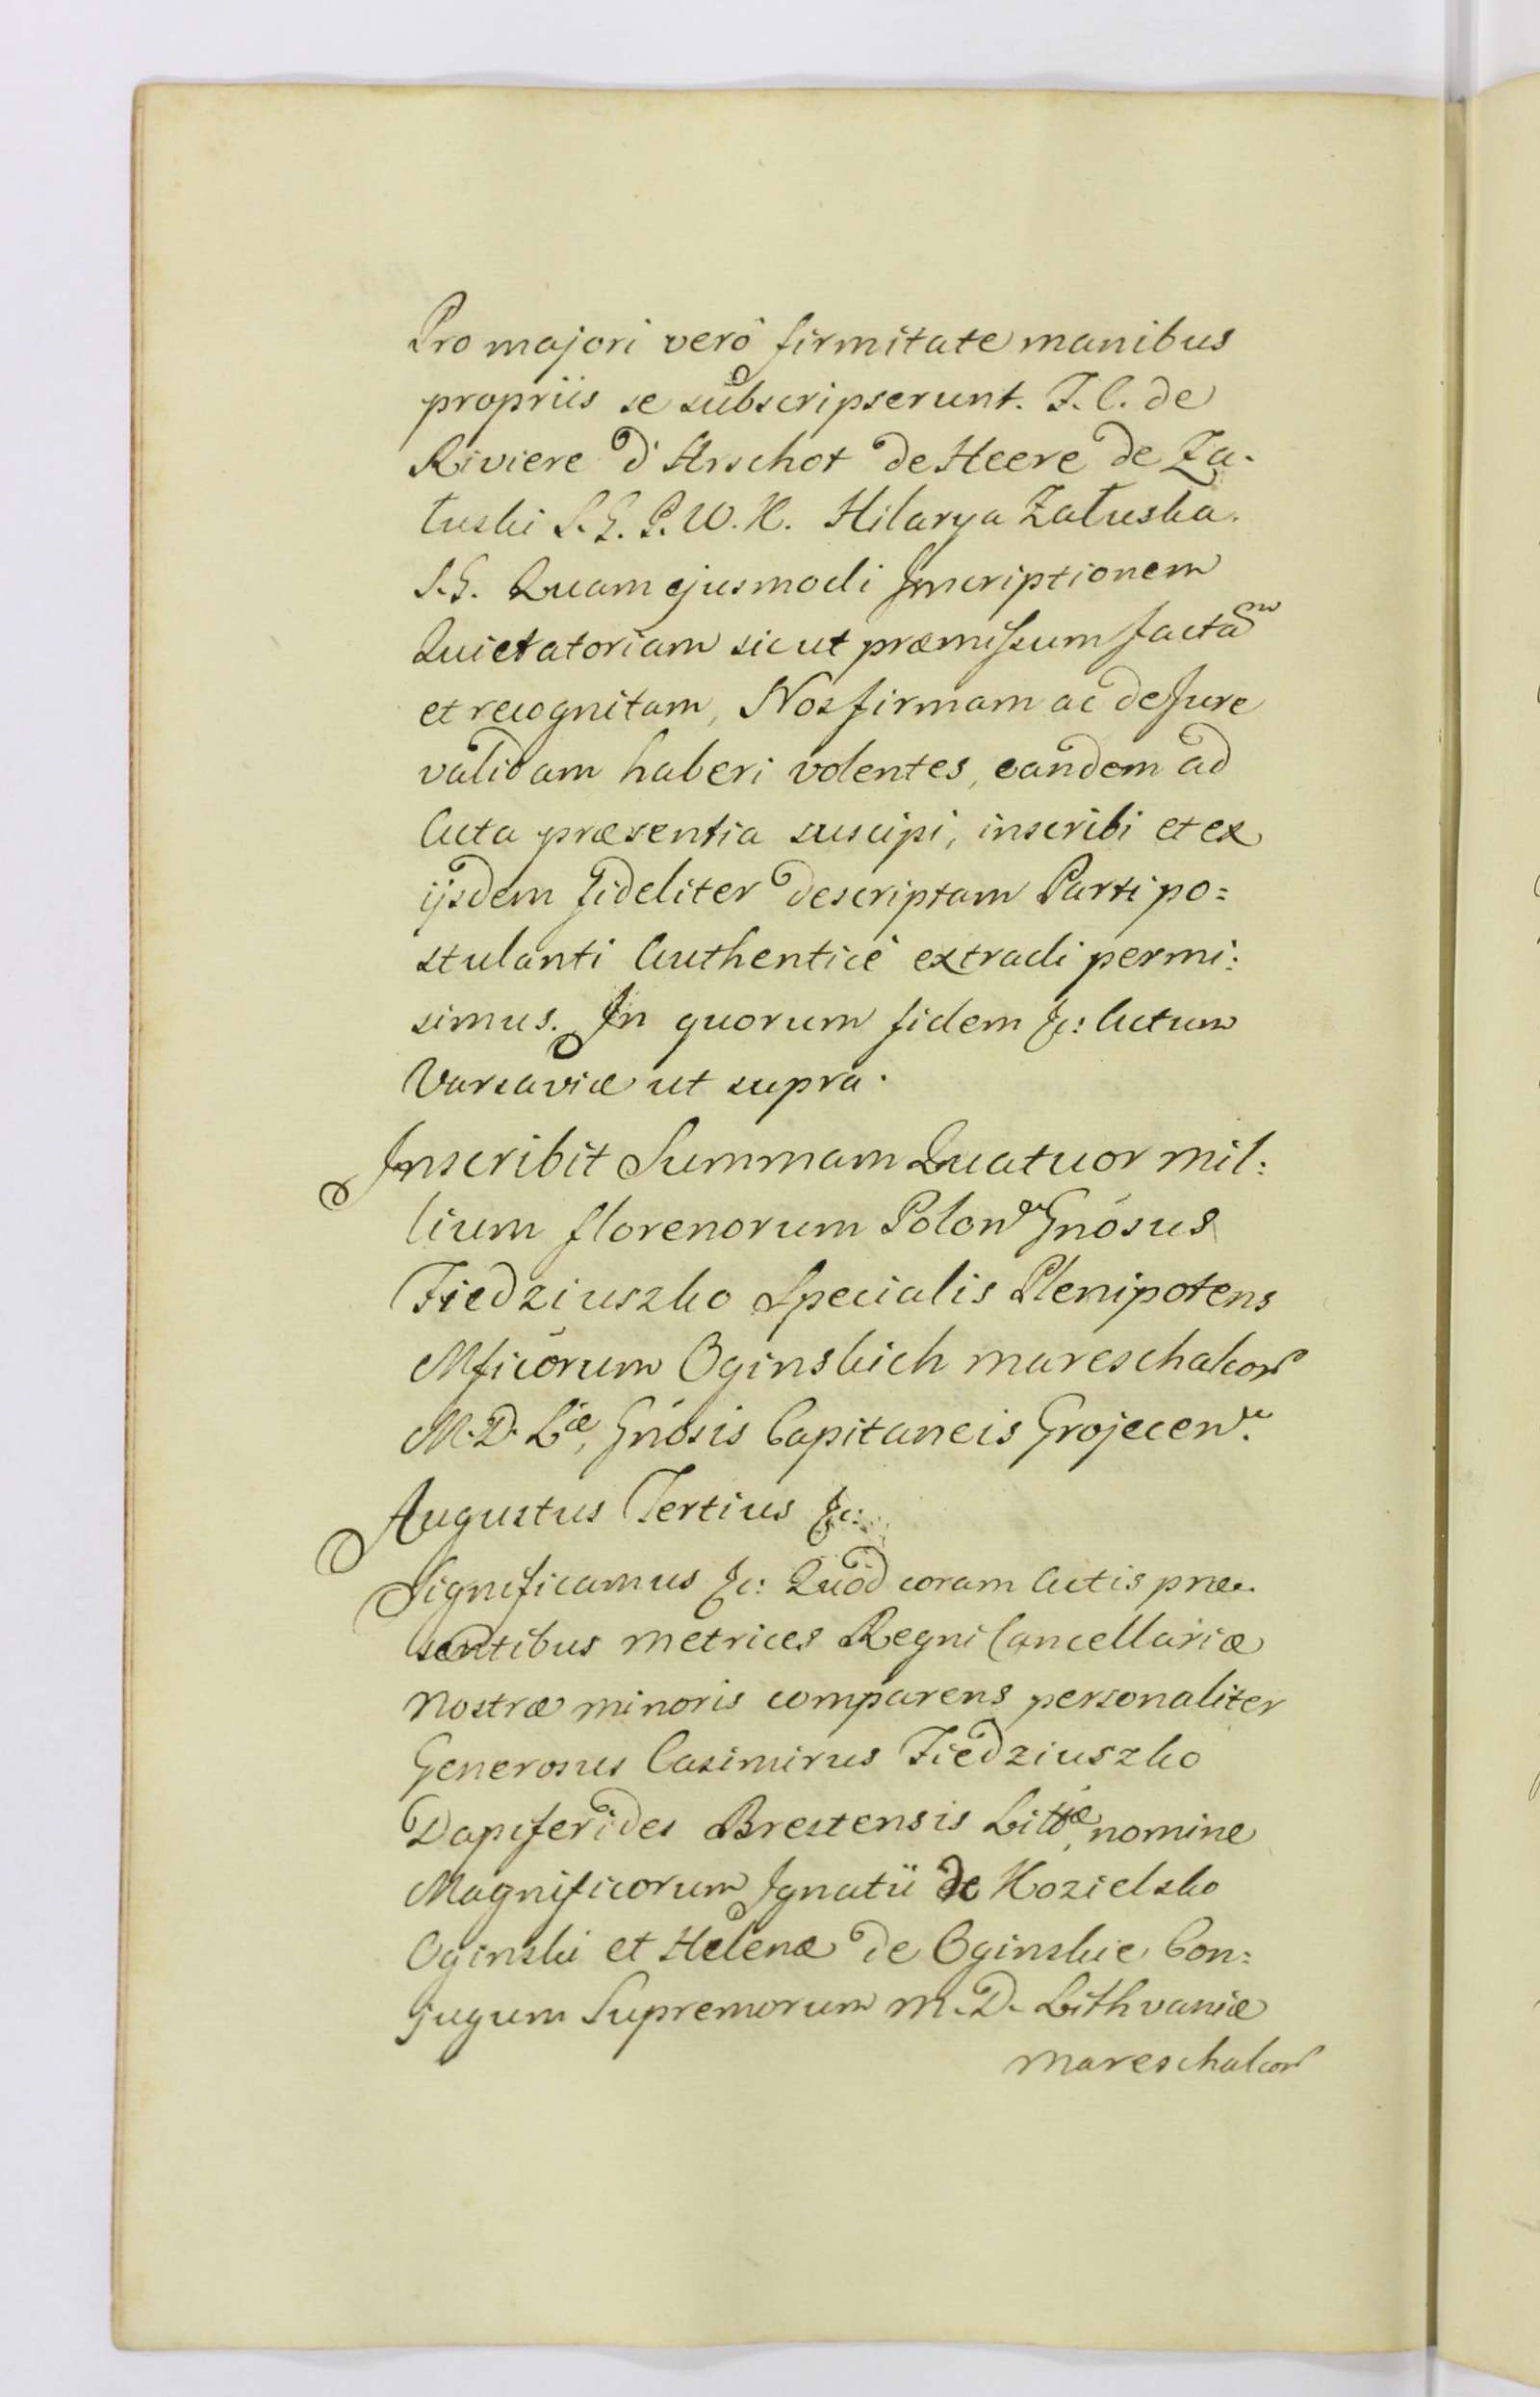 Pro majori verò firmitate manibus
propriis se subscripserunt. F. C. de
Riviere d'Arschot de Heere de Za-
łuski S. G. P. W. K. Hilarya Załuska.
S. G. Quam ejusmodi Inscriptionem
Quietatoriam sicut præmissum factam
et recognitam, Nos firmam ac de Jure
validam haberi volentes, eandem ad
Acta præsentia suscipi, inscribi et ex
ijsdem fideliter descriptam Parti po=
stulanti Authenticè extradi permi:
simus. In quorum fidem &c: Actum
Varsaviæ ut supra.
Inscribit Summam Quatuor mil:
lium florenorum Polon. Gnosus
Fiedziuszko Specialis Plenipotens
Mficorum Oginskich mareschalcor
M. D. L.æ, Gnosis Capitaneis Grojecen.
Augustus Tertius &c:
Significamus &c: Quod coram Actis præ-
sentibus metrices Regni Cancellariæ
nostræ minoris comparens personaliter
Generosus Casimirus Fiedziuszko
Dapiferides Brestensis Littæ, nomine
Magnificorum Ignatii de Kozielsko
Oginski et Helenæ de Oginskie Con:
jugum Supremorum M. D. Lithvaniæ
mareschalcor